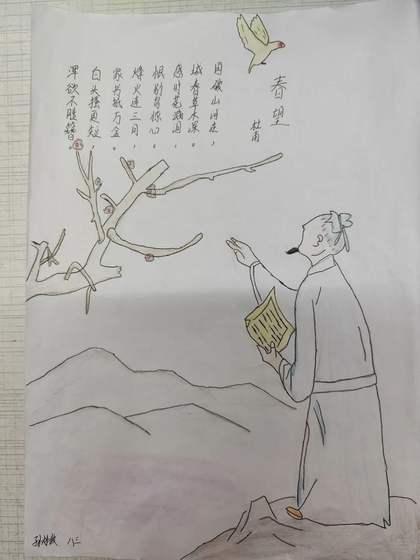 春望
杜甫
国破山河在，
城春草木深。
感时花溅泪，
恨别鸟惊心。
烽火连三月，
家书抵万金。
白头搔更短，
浑欲不胜簪。
八三